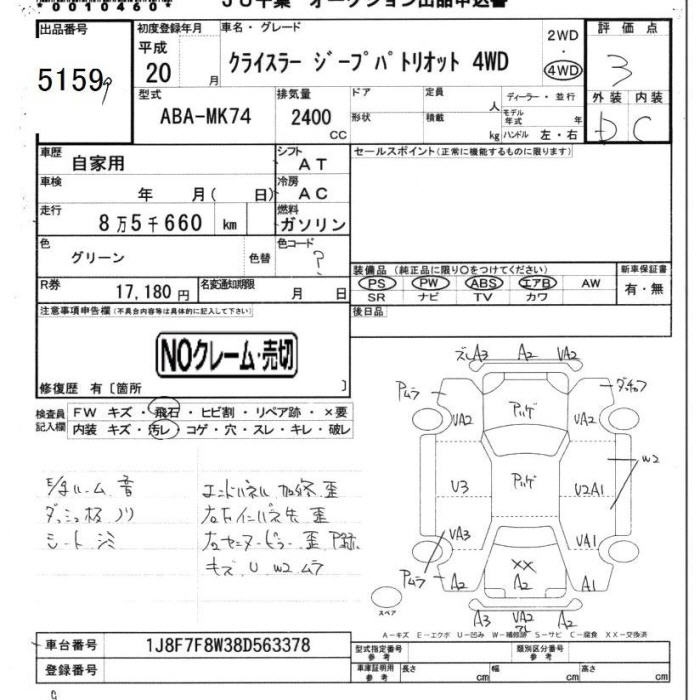 00104601 JU千葉 オークション出品申込書
出品番号 初度登録年月 車名・グレード 2WD 評価点
5159 9 平成 20 月 クライスラー ジープパトリオット 4WD ・ 4WD 3
型式 排気量 ドア 定員 人 ディーラー・並行 外装 内装
ABA-MK74 2400 CC 形状 積載 kg モデル年式 年 ハンドル 左・右 D C
車歴 自家用 シフト AT セールスポイント(正常に機能するものに限ります)
車検 年 月( 日) 冷房 AC
走行 8万5千660 km 燃料 ガソリン
色 グリーン 色替 色コード ?
装備品(純正品に限り○をつけてください) 新車保証書
R券 17,180円 名変通知期限 月 日 PS PW ABS エアB AW 有・無
SR ナビ TV カワ
注意事項申告欄(不具合内容等は具体的に記入して下さい) 後日品
NOクレーム・売切
修復歴 有〔箇所 〕
検査員 FW キズ・飛石・ヒビ割・リペア跡・×要
記入欄 内装 キズ・汚レ・コゲ・穴・スレ・キレ・破レ
ズレ A3 A2 VA2
Pムラ ダッチョウ
VA2 Pハゲ VA2
W2
V3 Pハゲ U2A1
VA3 VA1
Pムラ A2 XX A2 A1
スペア A3 VA2 A2
モール 音 エンドパネル 加修 歪
ダッシュ板 ノリ 右インパネ先 歪
シート シミ 右センターピラー 歪 P跡
キズ U W2 ムラ
A-キズ E-エクボ U-凹み W-補修跡 S-サビ C-腐食 XX-交換済
車台番号 1J8F7F8W38D563378 型式指定番号 参考 類別区分番号 参考
登録番号 車庫証明用 参考 長さ cm 幅 cm 高さ cm